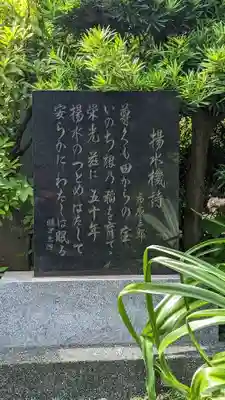 揚水機詩
尊くも田からの庄
いのち根の稲を育て
栄光 茲に 五十年
揚水のつとめはたして
安らかに わたしは眠る